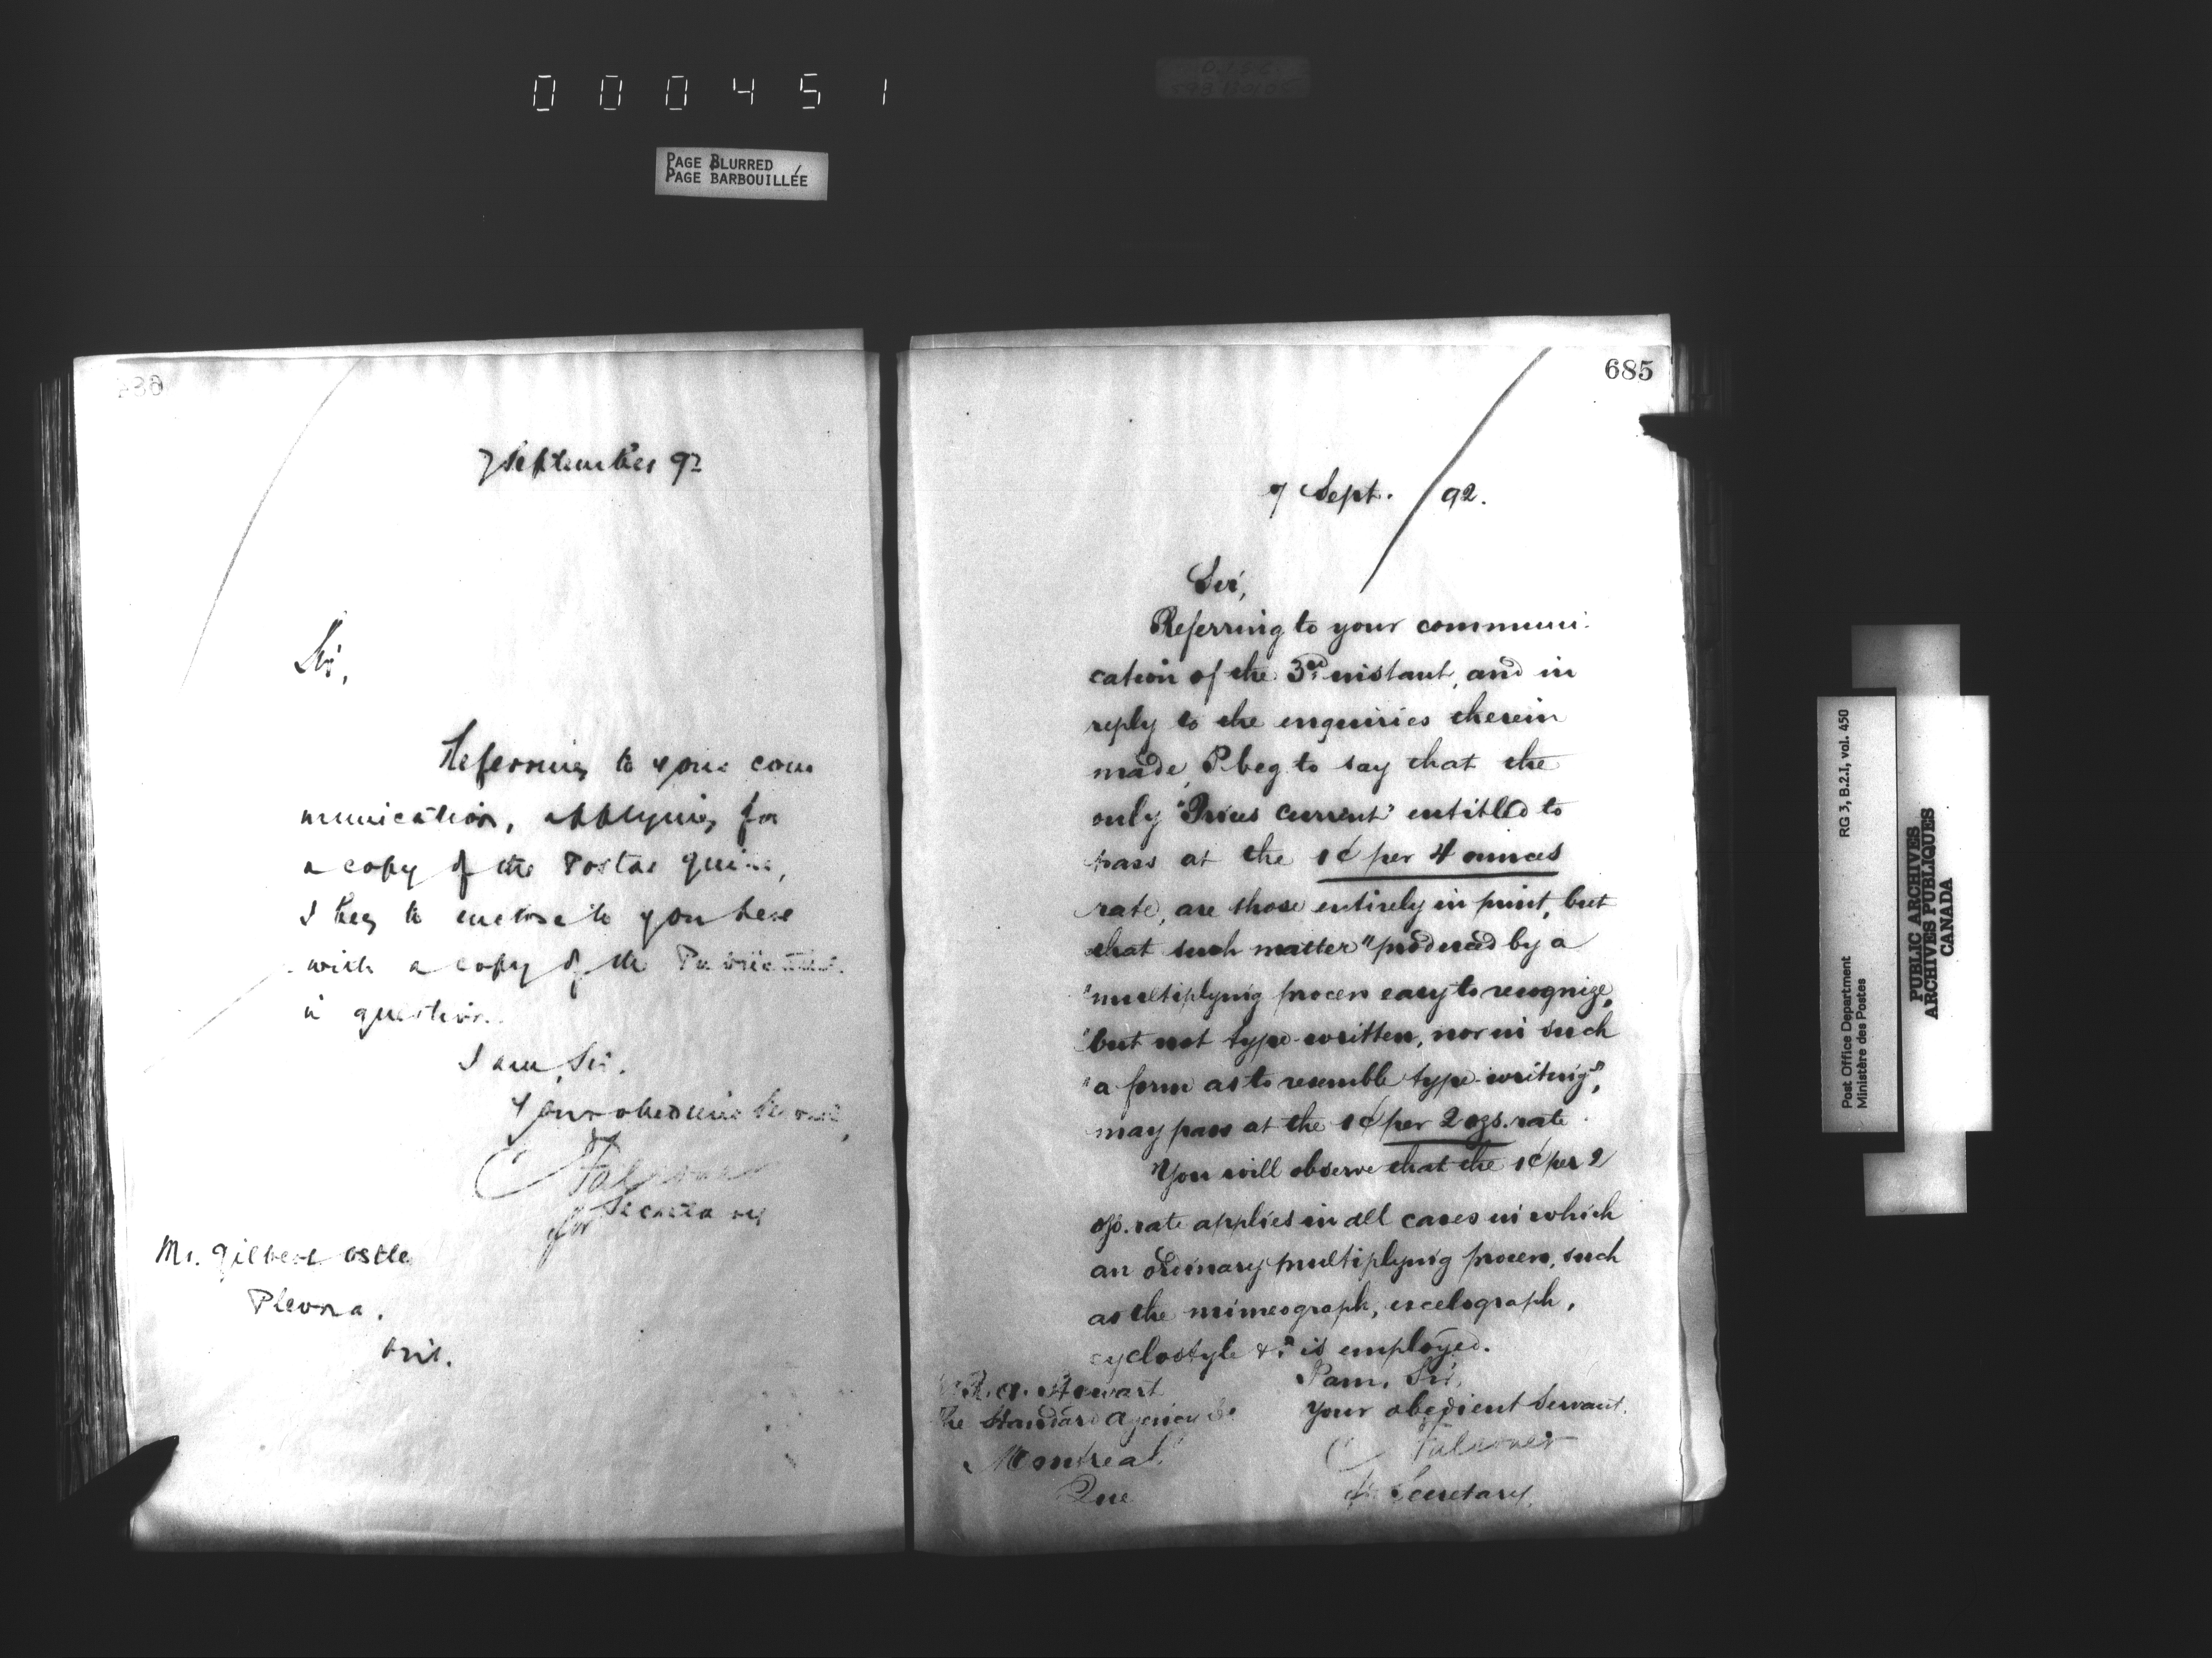 000451
PAGE BLURRED
PAGE BARBOUILLÉE
7 September 92
Sir,
Referring to your com
munication, applying for
a copy of the Postal Guide,
I beg to enclose to you here
with a copy of the Publication
in question.
I am, Sir,
Your obedient Servant,
C Falconer
for Secretary
Mr. Gilbert Ostle
Plevna.
Ont.
685
7 Sept. 92.
Sir,
Referring to your communi-
cation of the 3rd instant, and in
reply to the enquiries therein
made, I beg to say that the
only "Prices Current" entitled to
pass at the 1¢ per 4 ounces
rate, are those entirely in print, but
that such matter "produced by a
"multiplying process easy to recognize,
"but not type-written, nor in such
"a form as to resemble type-writing",
may pass at the 1¢ per 2 ozs. rate.
You will observe that the 1¢ per 2
ozs. rate applies in all cases in which
an ordinary multiplying process, such
as the mimeograph, excelograph,
cyclostyle &c is employed.
I am, Sir,
Your obedient Servant.
C Falconer
for Secretary.
R. A. Stewart
The Standard Agency Co
Montreal
Que
Post Office Department RG 3, B.2.I, vol. 450
Ministère des Postes
PUBLIC ARCHIVES
ARCHIVES PUBLIQUES
CANADA